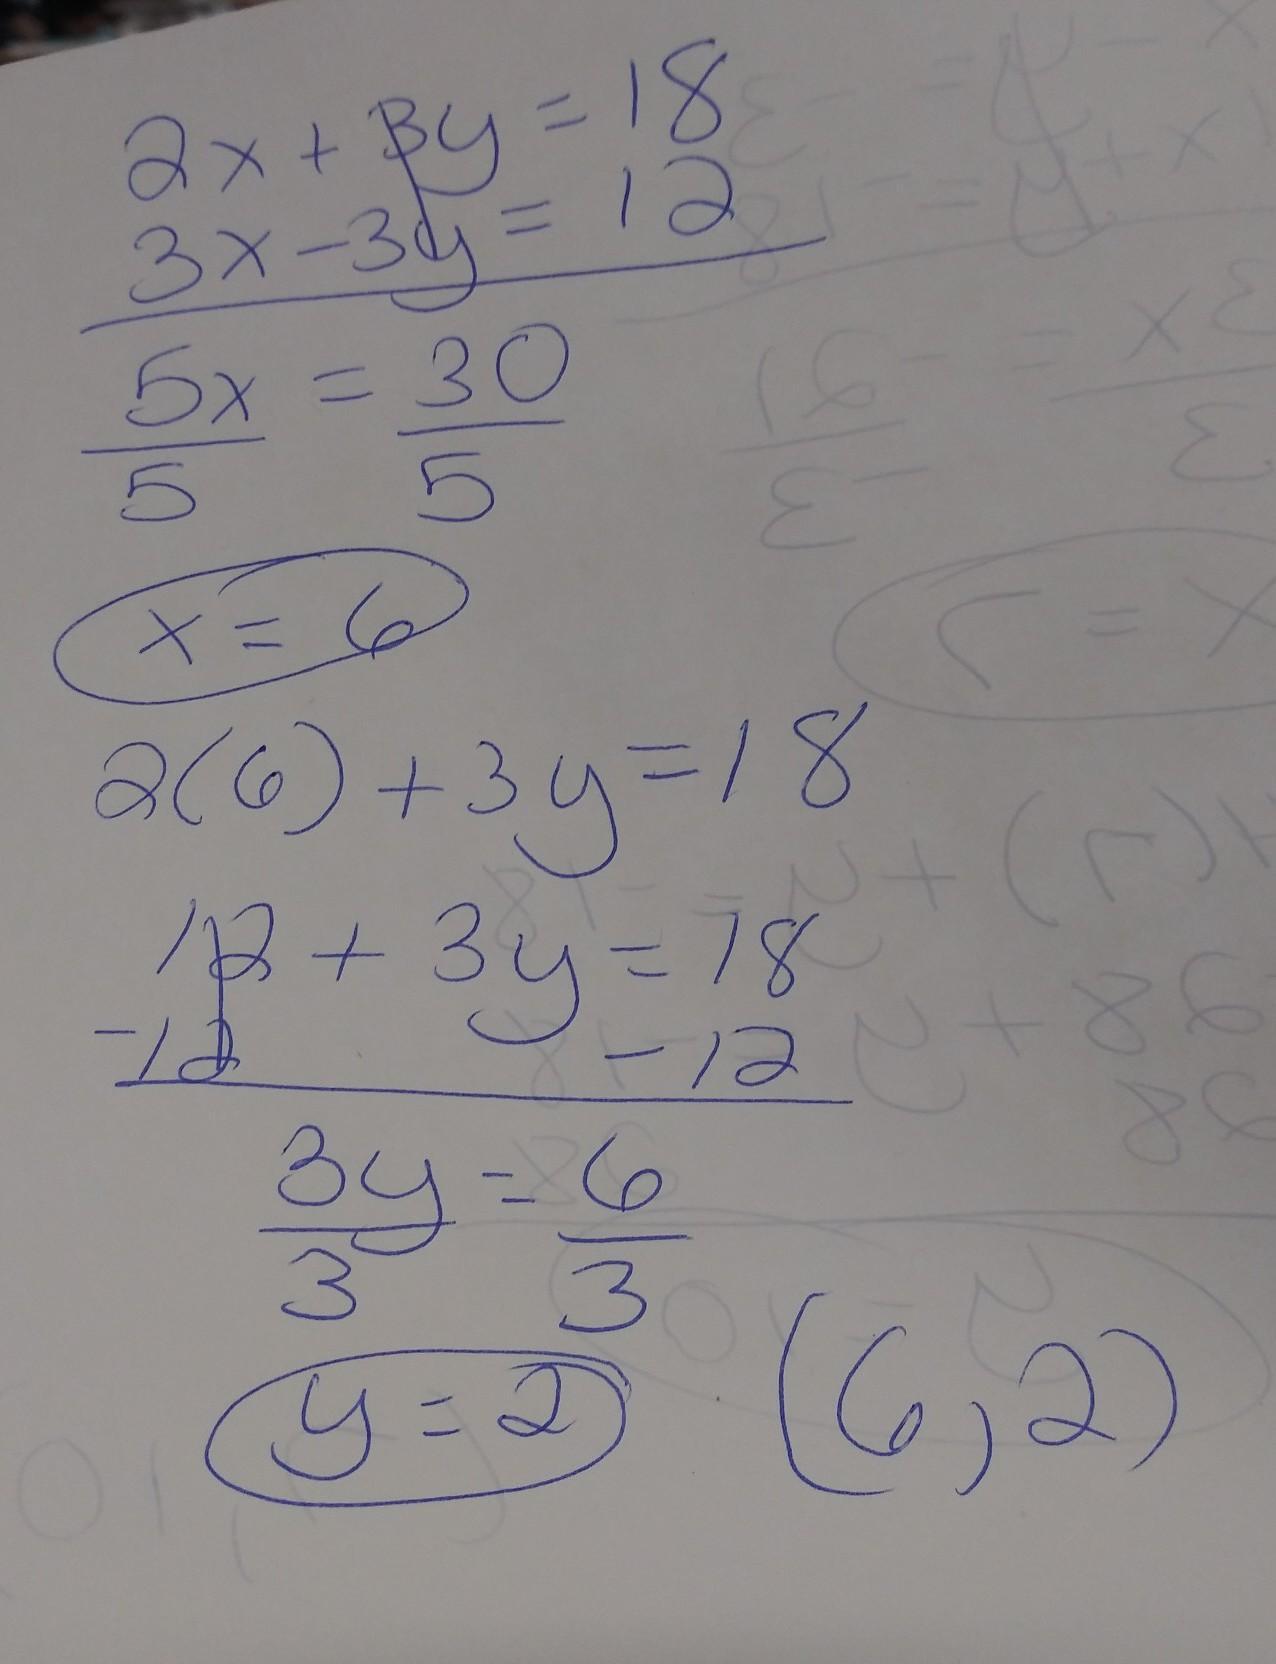 2x + 3y = 18
3x - 3y = 12
5x = 30
5 5
x = 6
2(6) + 3y = 18
12 + 3y = 18
-12 -12
3y = 6
3 3
y = 2 (6, 2)